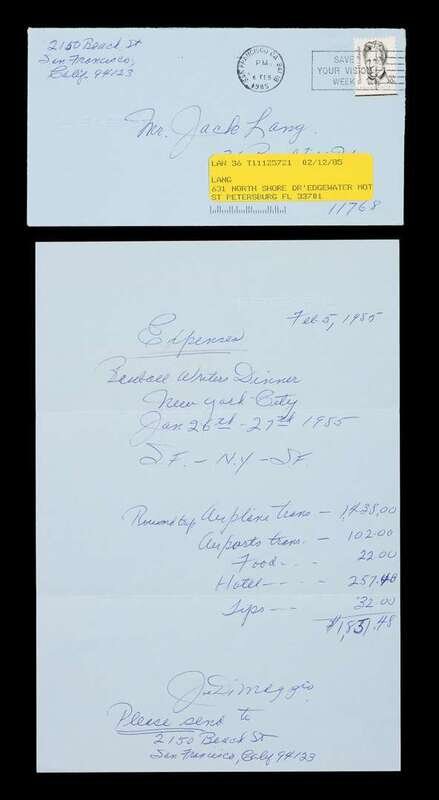 2150 Beach St
San Francisco,
Calif. 94123
SAN FRANCISCO CA 941
PM
6 FEB
1985
SAVE
YOUR VISION
WEEK
Mr. Jack Lang
LAN 36 T11125721 02/12/85
LANG
631 NORTH SHORE DR'EDGEWATER MOT
ST PETERSBURG FL 33701
11768
Feb 5, 1985
Expenses
Baseball Writers Dinner
New York City
Jan 26th - 27th 1985
S.F. - N.Y - S.F.
Roundtrip Airplane trans — 1,438.00
Airports trans. — 102.00
Food - - - 22.00
Hotel - - - - 257.48
Tips - - - 32.00
$1,851.48
Joe DiMaggio
Please send to
2150 Beach St
San Francisco, Calif 94123